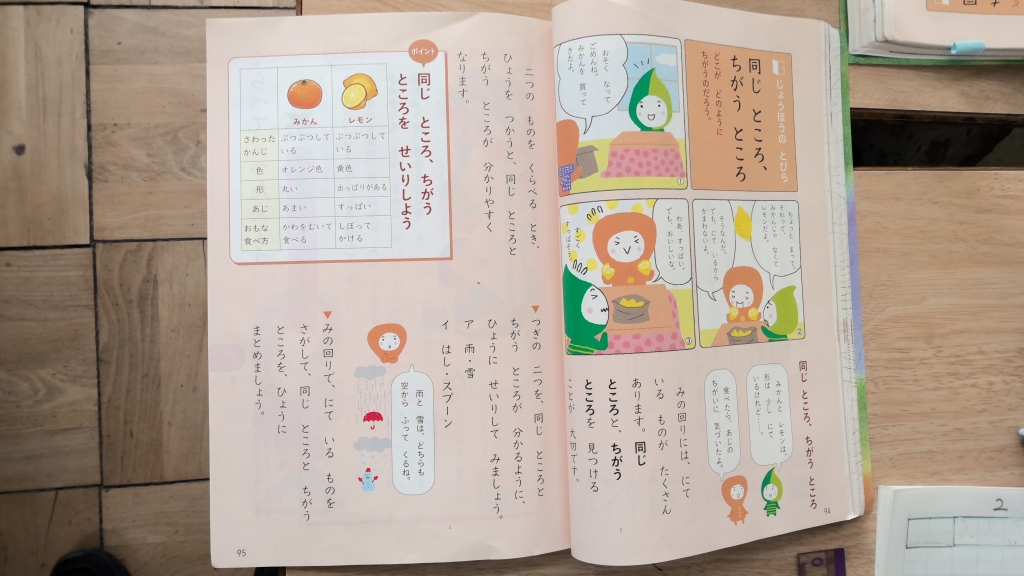 じょうほうの とびら
同じ ところ、
ちがう ところ
どこが どのように
ちがうのだろう。
おそく なって
ごめんね。
みかんを 買って
きたよ。
①
ちょっと まって。
それって、
みかんじゃ なくて、
レモンだよ。
そうなんだ。
でも、にて いるから
かまわないよ。
②
わあ、すっぱい。
でも、おいしいな。
すごく
すっぱそう。
③
同じ ところ、ちがう ところ
みかんと レモンは、
形は 少し にて
いるけれど……。
食べたり、あじの
ちがいに 気づいたよ。
みの回りには、にて
いる ものが たくさん
あります。同じ
ところと、ちがう
ところを 見つける
ことが 大切です。
94
二つの ものを くらべる とき、
ひょうを つかうと、同じ ところと
ちがう ところが 分かりやすく
なります。
ポイント
同じ ところ、ちがう
ところを せいりしよう
みかん レモン
さわった かんじ ぶつぶつして いる ぶつぶつして いる
色 オレンジ色 黄色
形 丸い 出っぱりがある
あじ あまい すっぱい
おもな 食べ方 かわをむいて 食べる しぼって かける
▼つぎの 二つを、同じ ところと
ちがう ところが 分かるように、
ひょうに せいりして みましょう。
ア 雨・雪
イ はし・スプーン
雨と 雪は、どちらも
空から ふって くるね。
▼みの回りで、にて いる ものを
さがして、同じ ところと ちがう
ところを、ひょうに
まとめましょう。
95
2